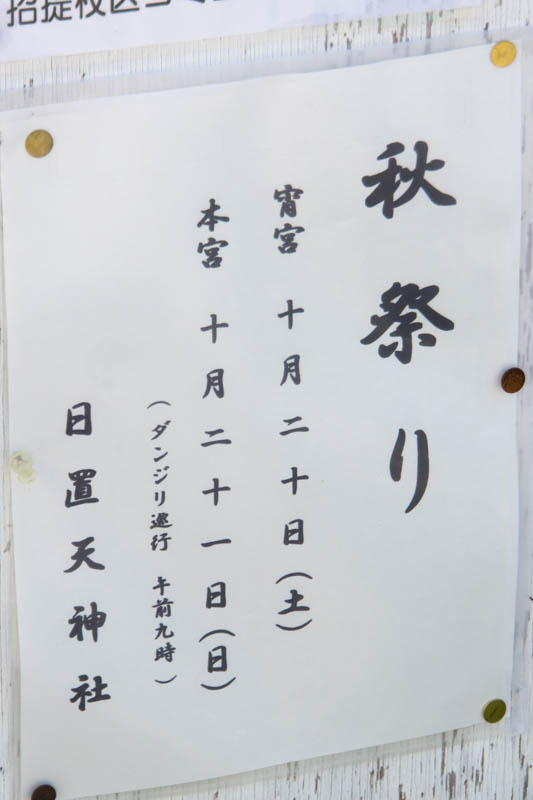 招提校区コミュ
秋祭り
宵宮 十月二十日(土)
本宮 十月二十一日(日)
(ダンジリ巡行 午前九時)
日置天神社